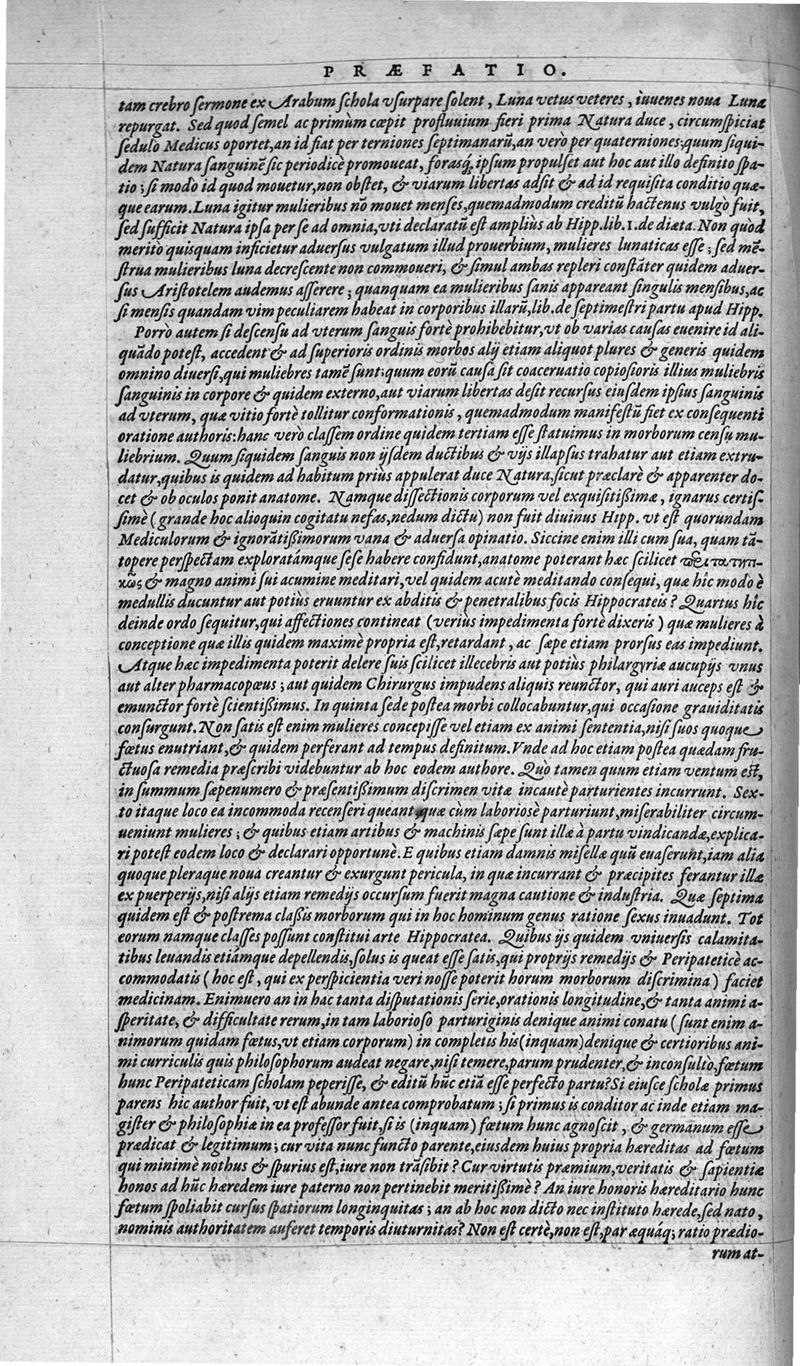 PRÆFATIO.
tam crebro ſermone ex Arabum ſchola vſurpare ſolent, Luna vetus veteres, iuuenes noua Luna
repurgat. Sed quod ſemel ac primùm cœpit profluuium fieri prima Natura duce, circumſpiciat
ſedulo Medicus oportet, an id fiat per terniones ſeptimanarũ, an verò per quaterniones, quum ſiqui-
dem Natura ſanguinẽ ſic periodicè promoueat, foraſq́; ipſum propulſet aut hoc aut illo definito ſpa-
tio; ſi modò id quod mouetur, non obſtet, & viarum libertas adſit & ad id requiſita conditio quæ-
que earum. Luna igitur mulieribus nõ mouet menſes, quemadmodum creditũ hactenus vulgò fuit,
ſed ſufficit Natura ipſa per ſe ad omnia, vti declaratũ eſt ampliùs ab Hipp. lib. 1. de diæta. Non quòd
meritò quisquam inficietur aduerſus vulgatum illud prouerbium, mulieres lunaticas eſſe; ſed mẽ-
ſtrua mulieribus luna decreſcente non commoueri, & ſimul ambas repleri conſtãter quidem aduer-
ſus Ariſtotelem audemus aſſerere; quanquam ea mulieribus ſanis appareant ſingulis menſibus, ac
ſi menſis quandam vim peculiarem habeat in corporibus illarũ, lib. de ſeptimeſtri partu apud Hipp.
Porrò autem ſi deſcenſu ad vterum ſanguis fortè prohibebitur, vt ob varias cauſas euenire id ali-
quãdo poteſt, accedent & ad ſuperioris ordinis morbos alij etiam aliquot plures & generis quidem
omnino diuerſi, qui muliebres tamẽ ſunt: quum eorũ cauſa ſit coaceruatio copioſioris illius muliebris
ſanguinis in corpore & quidem externo, aut viarum libertas deſit recurſus eiuſdem ipſius ſanguinis
ad vterum, quæ vitio fortè tollitur conformationis, quemadmodum manifeſtũ fiet ex conſequenti
oratione authoris: hanc verò claſſem ordine quidem tertiam eſſe ſtatuimus in morborum cenſu mu-
liebrium. Quum ſiquidem ſanguis non ijſdem ductibus & vijs illapſus trahatur aut etiam extru-
datur, quibus is quidem ad habitum priùs appulerat duce Natura, ſicut præclarè & apparenter do-
cet & ob oculos ponit anatome. Namque diſſectionis corporum vel exquiſitißimæ, ignarus certiſ-
ſimè (grande hoc alioquin cogitatu nefas, nedum dictu) non fuit diuinus Hipp. vt eſt quorundam
Mediculorum & ignorãtißimorum vana & aduerſa opinatio. Siccine enim illi cum ſua, quam tã-
topere perſpectam exploratámque ſeſe habere confidunt, anatome poterant hæc ſcilicet περιπατητι-
κῶς & magno animi ſui acumine meditari, vel quidem acutè meditando conſequi, quæ hîc modo è
medullis ducuntur aut potiùs eruuntur ex abditis & penetralibus focis Hippocrateis? Quartus hîc
deinde ordo ſequitur, qui affectiones contineat (verius impedimenta fortè dixeris) quæ mulieres à
conceptione quæ illis quidem maximè propria eſt, retardant, ac ſæpe etiam prorſus eas impediunt.
Atque hæc impedimenta poterit delere ſuis ſcilicet illecebris aut potiùs philargyriæ aucupijs vnus
aut alter pharmacopœus; aut quidem Chirurgus impudens aliquis reunctor, qui auri auceps eſt &
emunctor fortè ſcientißimus. In quinta ſede poſtea morbi collocabuntur, qui occaſione grauiditatis
conſurgunt. Non ſatis eſt enim mulieres concepiſſe vel etiam ex animi ſententia, niſi ſuos quoque
fœtus enutriant, & quidem perferant ad tempus definitum. Vnde ad hoc etiam poſtea quædam fru-
ctuoſa remedia præſcribi videbuntur ab hoc eodem authore. Quò tamen quum etiam ventum eſt,
in ſummum ſæpenumero & præſentißimum diſcrimen vitæ incautè parturientes incurrunt. Sex-
to itaque loco ea incommoda recenſeri queant quæ cùm laborioſè parturiunt, miſerabiliter circum-
ueniunt mulieres; & quibus etiam artibus & machinis ſæpe ſunt illæ à partu vindicandæ, explica-
ri poteſt eodem loco & declarari opportunè. E quibus etiam damnis miſellæ quũ euaſerunt, iam alia
quoque pleraque noua creantur & exurgunt pericula, in quæ incurrant & præcipites ferantur illæ
ex puerperijs, niſi alijs etiam remedijs occurſum fuerit magna cautione & induſtria. Quæ ſeptima
quidem eſt & poſtrema claßis morborum qui in hoc hominum genus ratione ſexus inuadunt. Tot
eorum namque claſſes poſſunt conſtitui arte Hippocratea. Quibus ijs quidem vniuerſis calamita-
tibus leuandis etiámque depellendis, ſolus is queat eſſe ſatis, qui proprijs remedijs & Peripateticè ac-
commodatis (hoc eſt, qui ex perſpicientia veri noſſe poterit horum morborum diſcrimina) faciet
medicinam. Enimuero an in hac tanta diſputationis ſerie, orationis longitudine, & tanta animi a-
ſperitate, & difficultate rerum, in tam laborioſo parturiginis denique animi conatu (ſunt enim a-
nimorum quidam fœtus, vt etiam corporum) in completis his (inquam) denique & certioribus ani-
mi curriculis quis philoſophorum audeat negare, niſi temere, parum prudenter, & inconſultò, fœtum
hunc Peripateticam ſcholam peperiſſe, & editũ hũc etiã eſſe perfecto partu? Si eiuſce ſcholæ primus
parens hic author fuit, vt eſt abunde antea comprobatum; ſi primus is conditor ac inde etiam ma-
giſter & philoſophiæ in ea profeſſor fuit, ſi is (inquam) fœtum hunc agnoſcit, & germanum eſſe
prædicat & legitimum; cur vita nunc functo parente, eiuſdem huius propria hæreditas ad fœtum
qui minimè nothus & ſpurius eſt, iure non trãſibit? Cur virtutis præmium, veritatis & ſapientiæ
honos ad hũc hæredem iure paterno non pertinebit meritißimè? An iure honoris hæreditario hunc
fœtum ſpoliabit curſus ſpatiorum longinquitas; an ab hoc non dicto nec inſtituto hærede, ſed nato,
nominis authoritatem auferet temporis diuturnitas? Non eſt certè, non eſt, par æquáq; ratio prædio-
rum at-